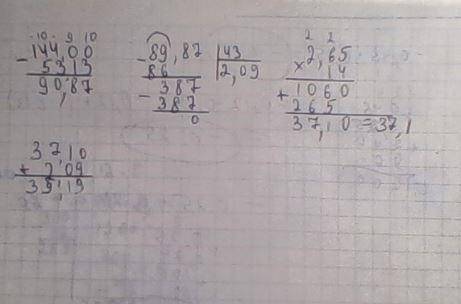 · 10 · 9 10
- 144,00
53,13
90,87
- 89,87 | 43
86 2,09
- 387
387
0
2 2
× 2,65
14
+ 1060
265
37,10 = 37,1
37,10
+ 2,09
39,19